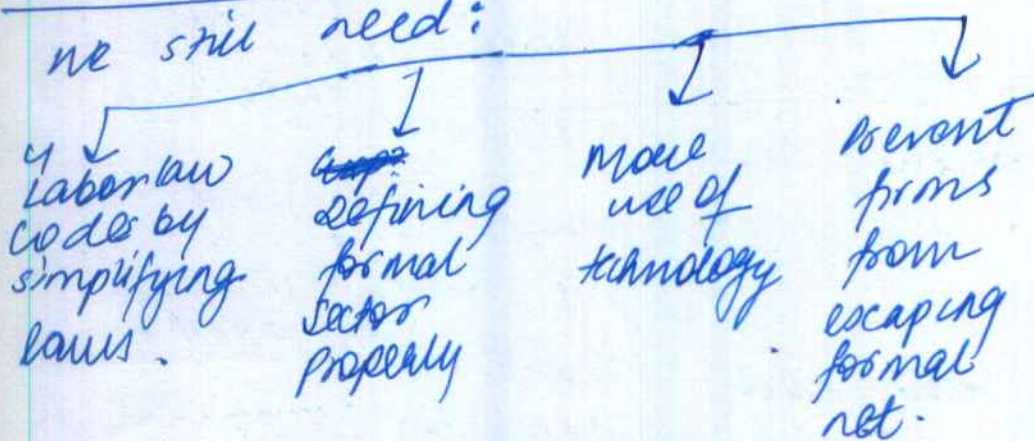 we still need:
4 labor law
codes by
simplifying
laws.
Defining
formal
sector
properly
more
use of
technology
Prevent
firms
from
escaping
formal
net.